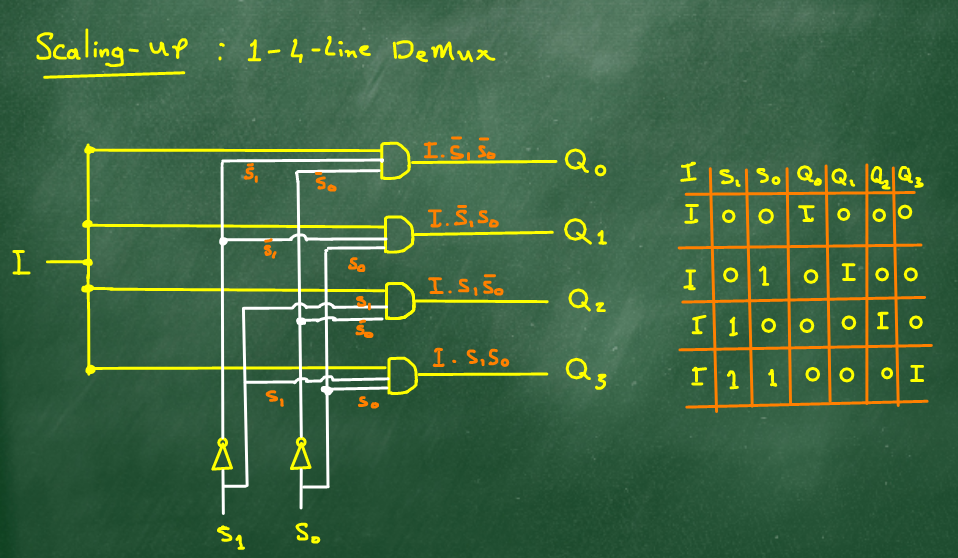 Scaling-up : 1-4-Line DeMux
I. S̄₁ S̄₀
Q₀
S̄₁
S̄₀
I. S̄₁ S₀
Q1
S̄₁
S₀
I
I. S₁ S̄₀
Q₂
S₁
S̄₀
I. S₁ S₀
Q₃
S₁
S₀
S₁
S₀
I S₁ S₀ Q₀ Q₁ Q₂ Q₃
I 0 0 I 0 0 0
I 0 1 0 I 0 0
I 1 0 0 0 I 0
I 1 1 0 0 0 I